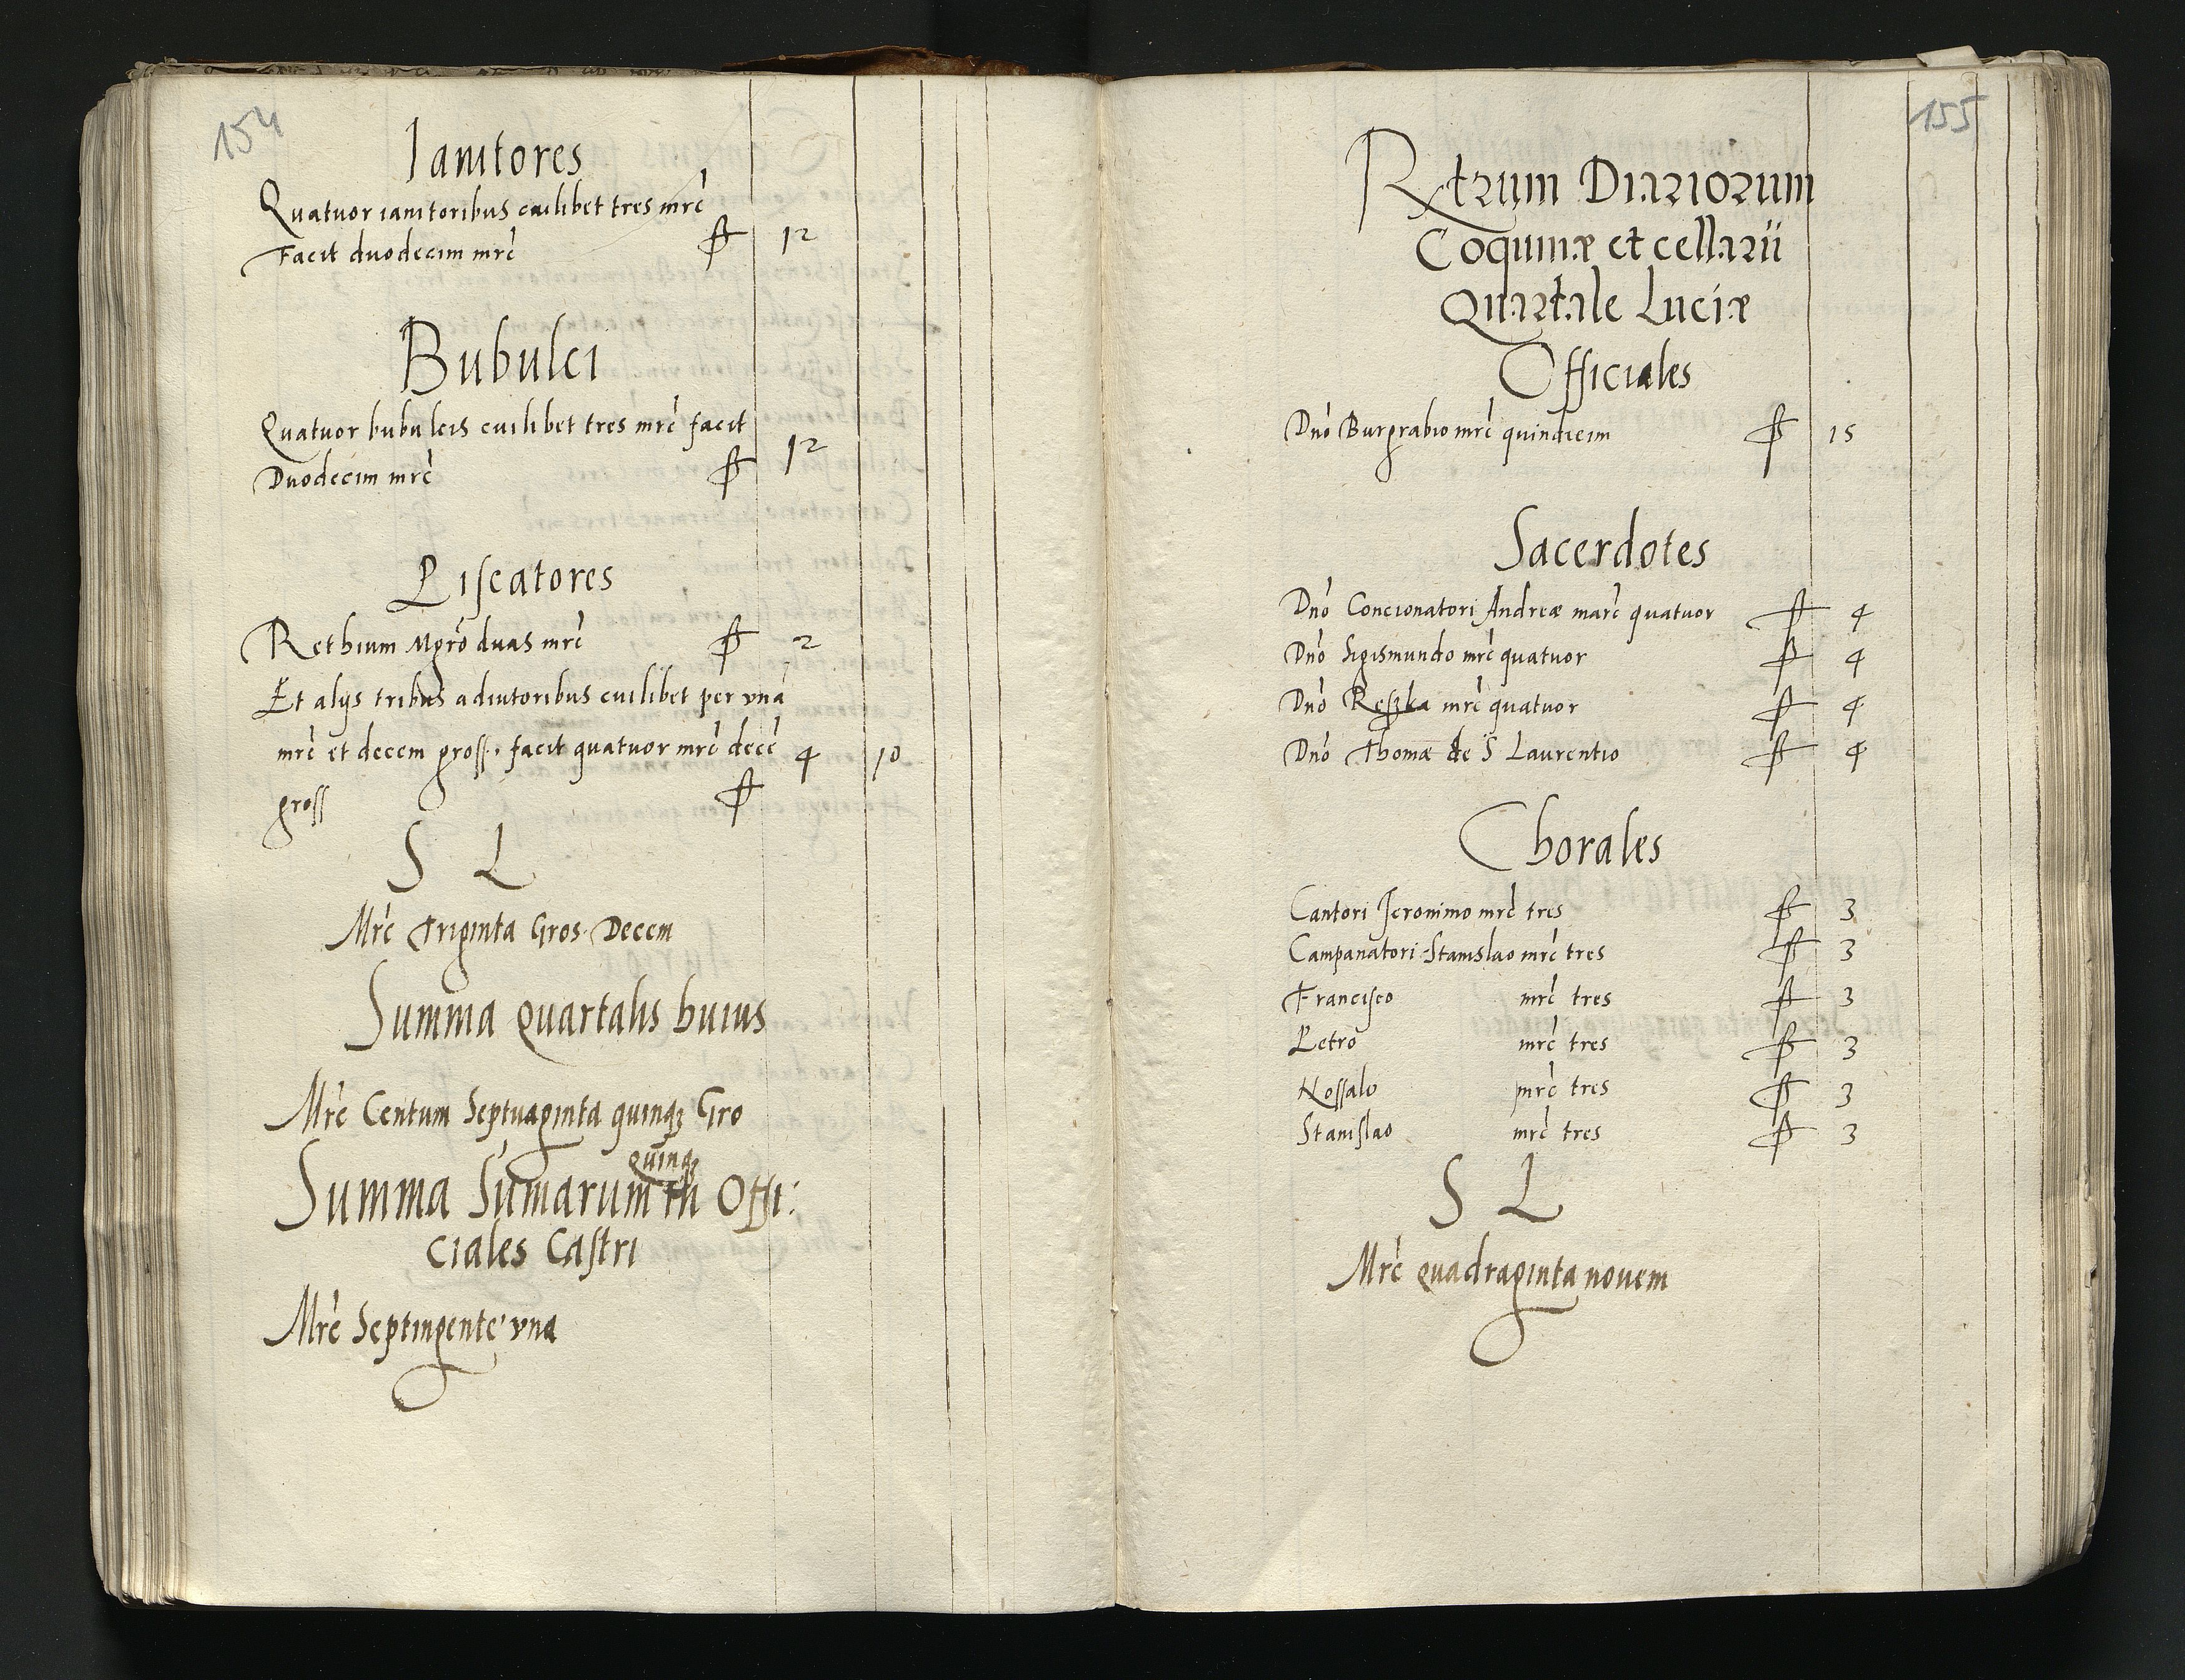 154
Ianitores
Quatuor ianitoribus cuilibet tres mrć
Facit duodecim mrć 12
Bubulci
Quatuor bubulcis cuilibet tres mrć facit
Duodecim mrć 12
Piscatores
Rethium Mgrō duas mrć 2
Et alijs tribus adiutoribus cuilibet per vnā
mrć et decem gross. facit quatuor mrć decē 4 10
gross
S L
Mrć Triginta Gros. Decem
Summa quartalis huius
Mrć Centum Septuaginta quinq3 Gro
quinq3
Summa Sumarum in Offi:
ciales Castri
Mrć Septingente vna
155
Rtrum Diariorum
Coquinæ et cellarii
Quartale Luciæ
Officiales
Dnō Burgrabio mrć quindicim 15
Sacerdotes
Dnō Concionatori Andreæ marć quatuor 4
Dnō Sigismundo mrć quatuor 4
Dnō Reszka mrć quatuor 4
Dnō Thomæ de S Laurentio 4
Chorales
Cantori Jeronimo mrć tres 3
Campanatori Stanislao mrć tres 3
Francisco mrć tres 3
Petro mrć tres 3
Nossalo mrć tres 3
Stanislao mrć tres 3
S L
Mrć quadraginta novem